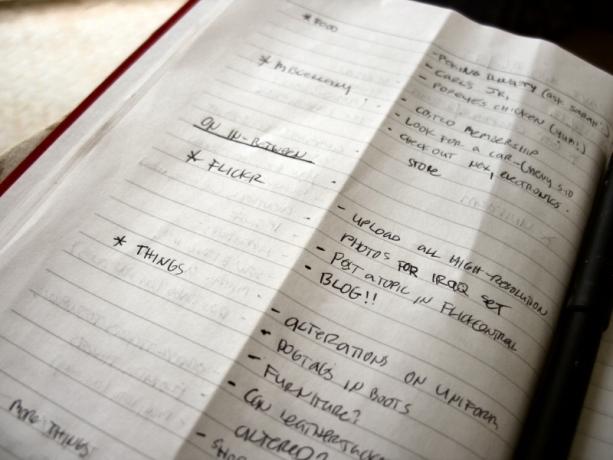 * FOOD
- POPEYE'S CHICKEN (YUM!)
- CARL'S JR,
* MISCELLANY
- COSTCO MEMBERSHIP
- LOOK FOR A CAR - CHEVY S-10
- CHECKOUT NEX, ELECTRONICS.
STORE
ON IN-BETWEEN
* FLICKR
- UPLOAD ALL HIGH-RESOLUTION
PHOTOS FOR IRAQ SET
- POST A TOPIC IN FLICKRCENTRAL
- BLOG!!
* THINGS
- ALTERATIONS ON UNIFORM
- DOGTAGS IN BOOTS
- FURNITURE?
- CAN
ALTERED?
MORE THINGS